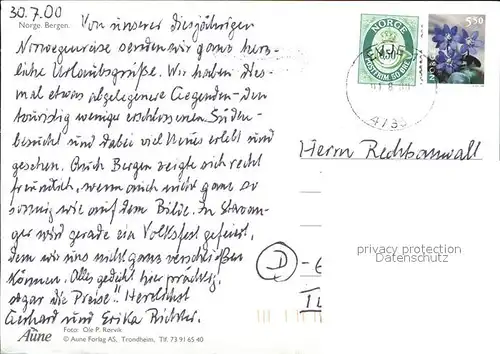 30.7.00
Norge. Bergen.
Von unserer diesjährigen
Norwegenreise senden wir ganz herz-
liche Urlaubsgrüße. Wir haben dies-
mal etwas abgelegenere Gegenden - den
touristig weniger erschlossenen Süden -
besucht und dabei viel Neues erlebt und
gesehen. Auch Bergen zeigte sich recht
freundlich, wenn auch nicht ganz so
sonnig wie auf dem Bilde. In Stavan-
ger wird gerade ein Volksfest gefeiert,
dem wir uns nicht ganz verschließen
können. Alles gedeiht hier prächtig,
sogar die Preise!! Herzlichst
Gerhard und Erika Richter.
Foto: Ole P. Rørvik
Aune
© Aune Forlag AS, Trondheim, Tlf. 73 91 65 40
NORGE
POSTFRIM. 50 ØRE
5.50
4735
Herrn Rechtsanwalt
privacy protection
Datenschutz
D -